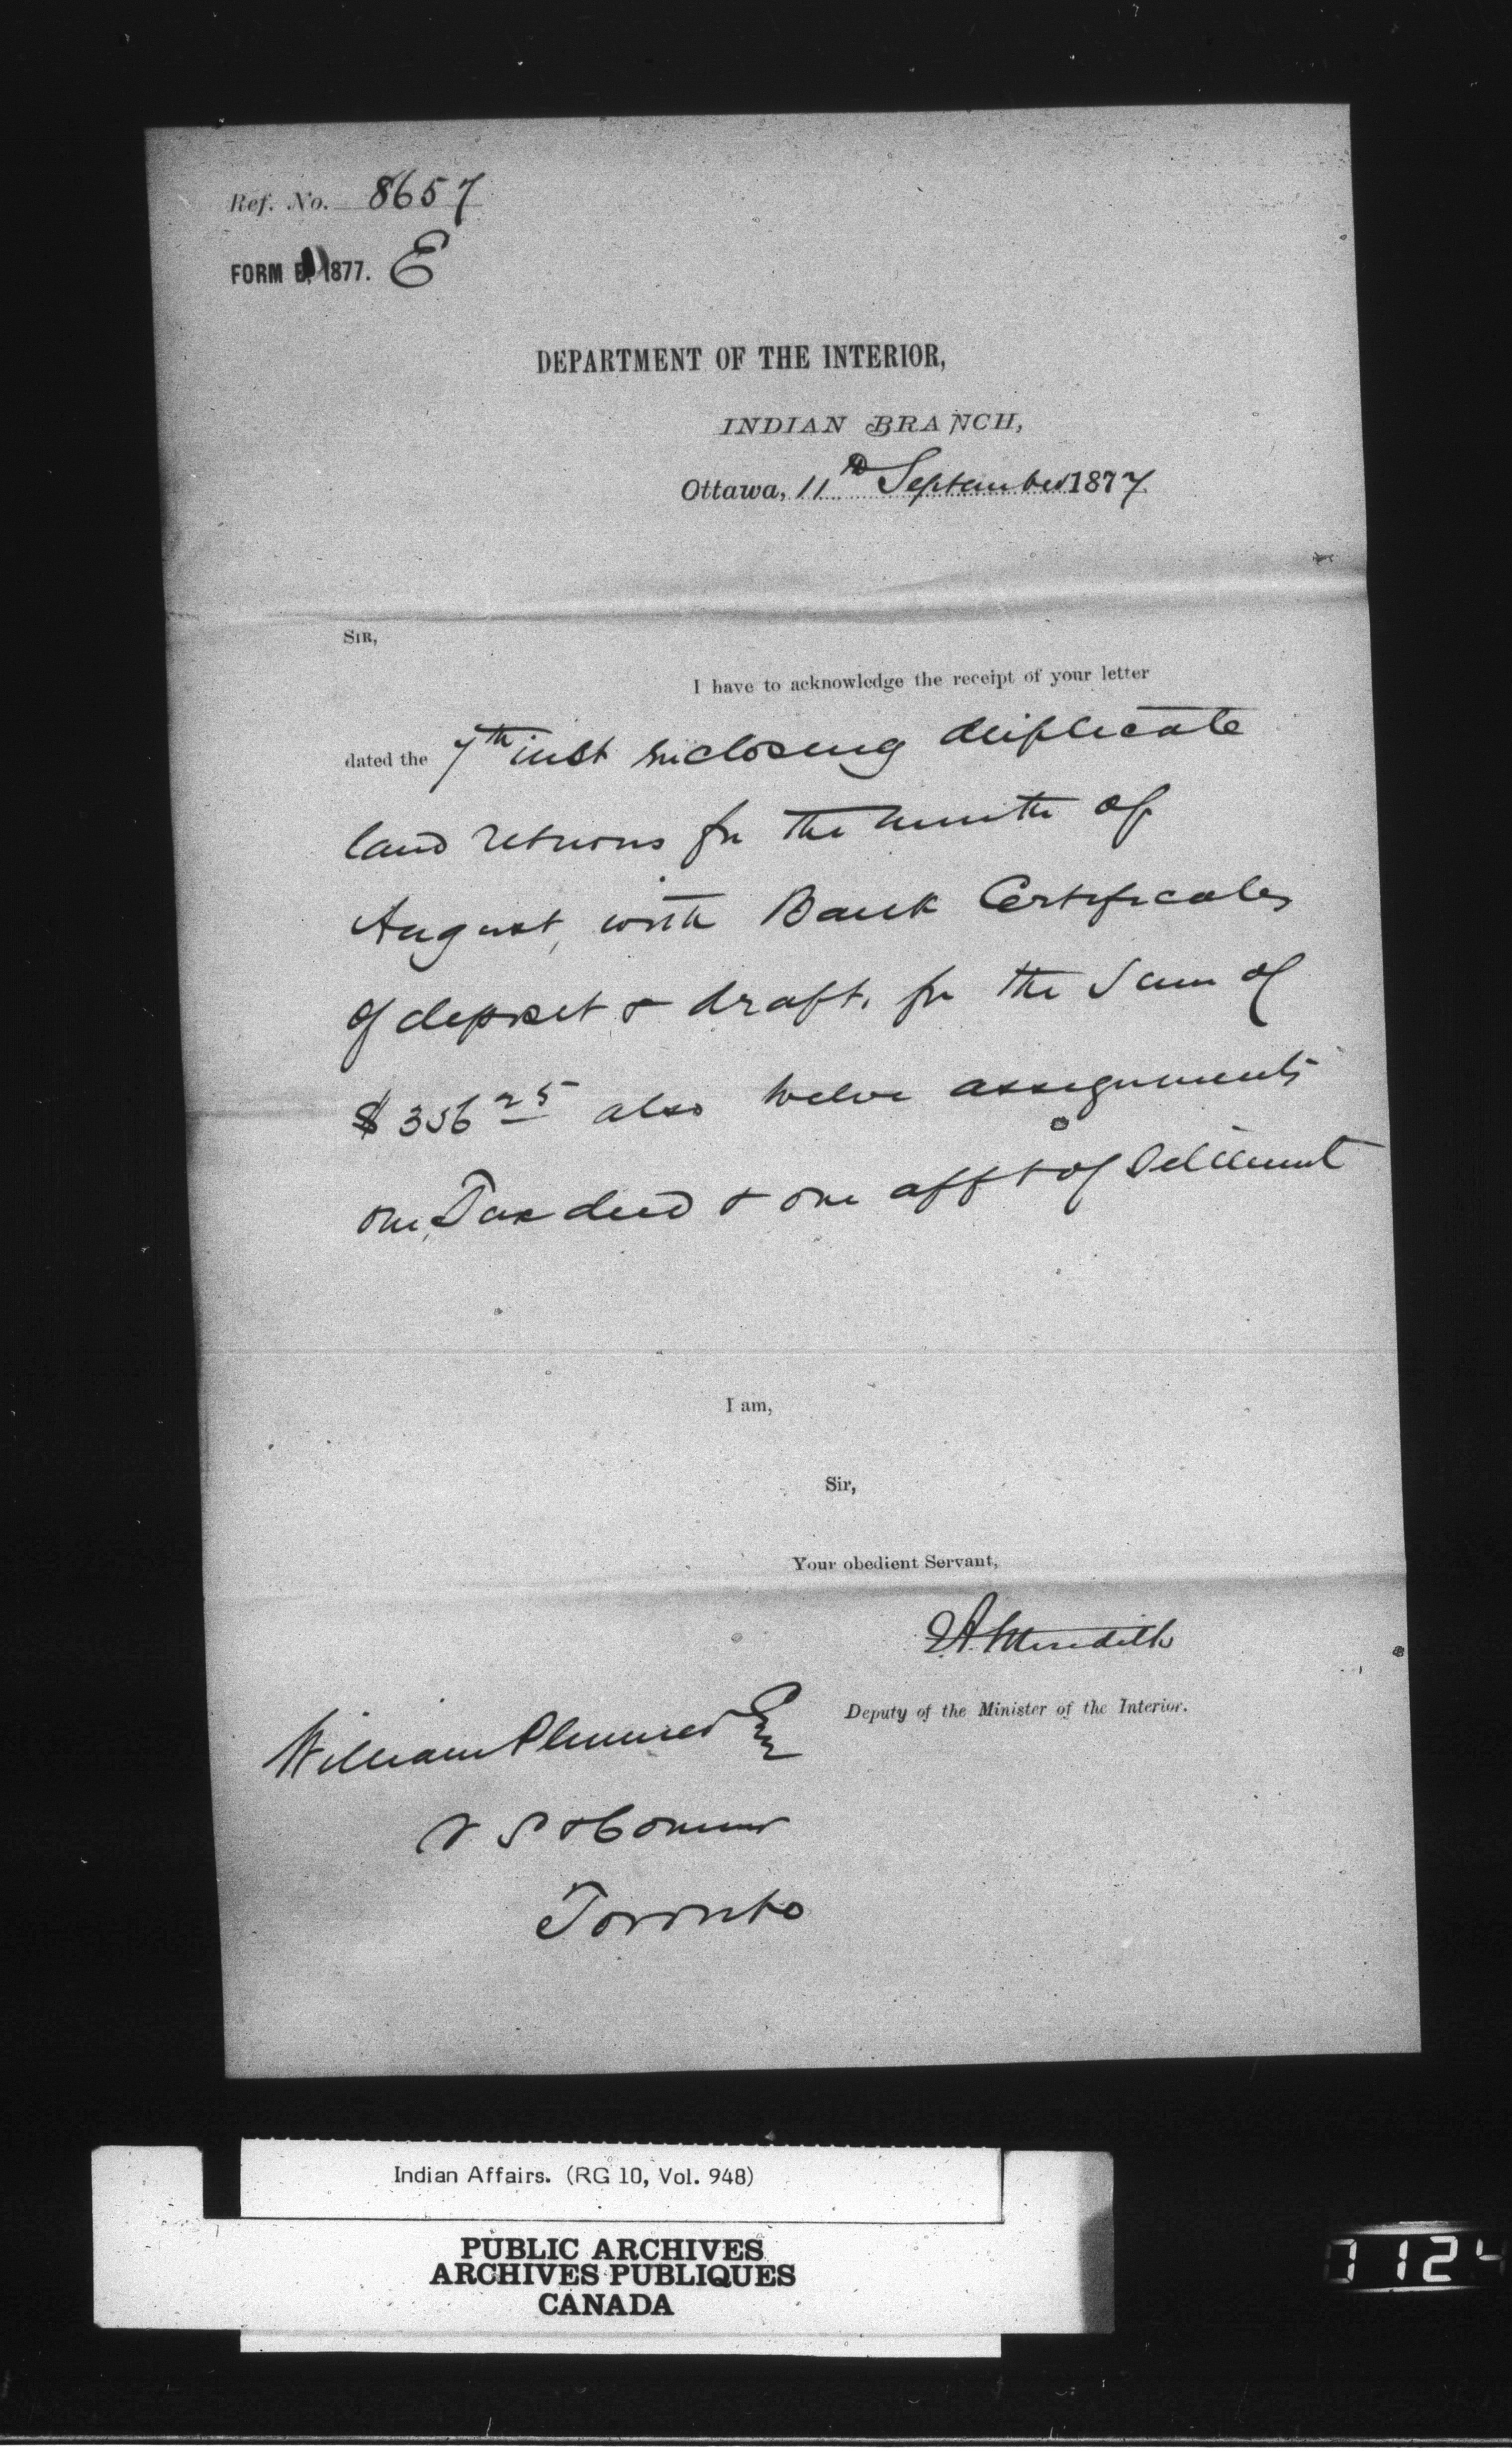 Ref. No. 8657
FORM E, 1877. E
DEPARTMENT OF THE INTERIOR,
INDIAN BRANCH,
Ottawa, 11th September 1877
SIR,
I have to acknowledge the receipt of your letter
dated the 7th inst enclosing duplicate
land returns for the month of
August, with Bank Certificates
of deposit & draft, for the Sum of
$356 25 also twelve assignments
one, Tax deed & one afft of Settlement
I am,
Sir,
Your obedient Servant,
E.A. Meredith
Deputy of the Minister of the Interior.
William Plummer Esq
V S & Commr
Toronto
Indian Affairs. (RG 10, Vol. 948)
PUBLIC ARCHIVES
ARCHIVES PUBLIQUES
CANADA
1124